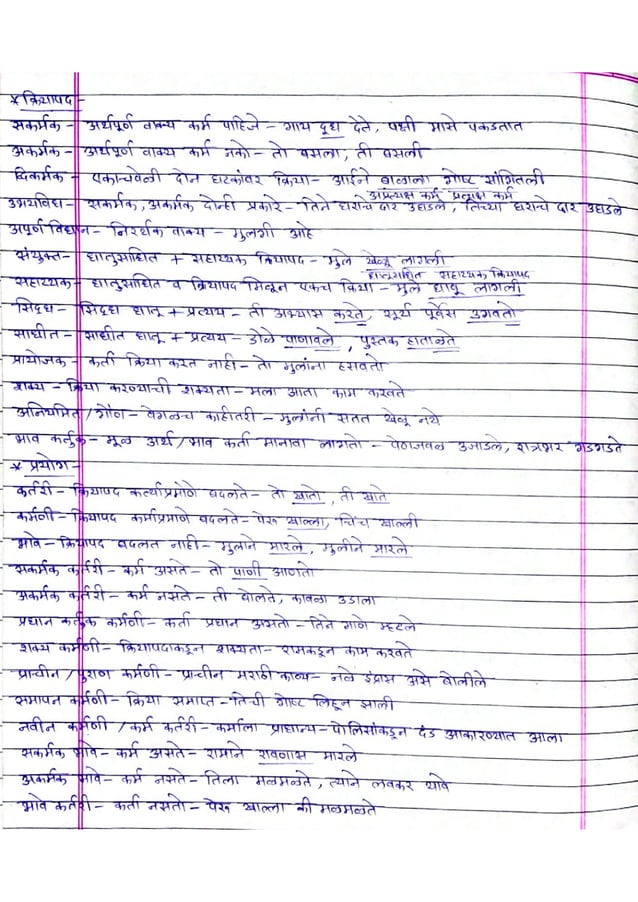 * क्रियापद -
सकर्मक - अर्थपूर्ण वाक्य कर्म पाहिजे - गाय दूध देते, पक्षी मासे पकडतात
अकर्मक - अर्थपूर्ण वाक्य कर्म नको - तो बसला, ती बसली
द्विकर्मक - एकाचवेळी दोन घटकांवर क्रिया - आईने बाळाला गोष्ट सांगितली
अप्रत्यक्ष कर्म प्रत्यक्ष कर्म
उभयविध - सकर्मक, अकर्मक दोन्ही प्रकारे - तिने घराचे दार उघडले, तिच्या घराचे दार उघडले
अपूर्ण विधान - निरर्थक वाक्य - मुलगी आहे
संयुक्त - धातुसाधित + सहाय्यक क्रियापद - मुले खेळू लागली
धातुसाधित सहाय्यक क्रियापद
सहाय्यक - धातुसाधित व क्रियापद मिळून एकच क्रिया - मुले धावू लागली
सिद्ध - सिद्ध धातू + प्रत्यय - ती अभ्यास करते, सूर्य पूर्वेस उगवतो
साधीत - साधीत धातू + प्रत्यय - डोळे पाणावले, पुस्तक हाताळते
प्रायोजक - कर्ता क्रिया करत नाही - तो मुलांना हसवतो
शक्य - क्रिया करण्याची शक्यता - मला आता काम करवते
अनियमित / गौण - वेगळच काहीतरी - मुलांनी सतत खेळू नये
भाव कर्तुक - मूळ अर्थ / भाव कर्ता मानावा लागतो - पेठाजवळ उजाडले, रात्रभर गडगडते
* प्रयोग -
कर्तरी - क्रियापद कर्त्याप्रमाणे बदलते - तो खातो, ती खाते
कर्मणी - क्रियापद कर्माप्रमाणे बदलते - पेरू खाल्ला, चिंच खाल्ली
भावे - क्रियापद बदलत नाही - मुलाने मारले, मुलीने मारले
सकर्मक कर्तरी - कर्म असते - तो पाणी आणतो
अकर्मक कर्तरी - कर्म नसते - ती बोलते, कावळा उडाला
प्रधान कर्तुक कर्मणी - कर्ता प्रधान असतो - तिने गाणे म्हटले
शक्य कर्मणी - क्रियापदाकडून शक्यता - रामकडून काम करवते
प्राचीन / पुराण कर्मणी - प्राचीन मराठी काव्य - नळे इंद्रास असे बोलीले
समापन कर्मणी - क्रिया समाप्त - तिची गोष्ट लिहून झाली
नवीन कर्मणी / कर्म कर्तरी - कर्माला प्राधान्य - पोलिसांकडून दंड आकारण्यात आला
सकर्मक भावे - कर्म असते - रामाने रावणास मारले
अकर्मक भावे - कर्म नसते - तिला मळमळते, त्याने लवकर यावे
भावे कर्तरी - कर्ता नसतो - पेरू खाल्ला की मळमळते